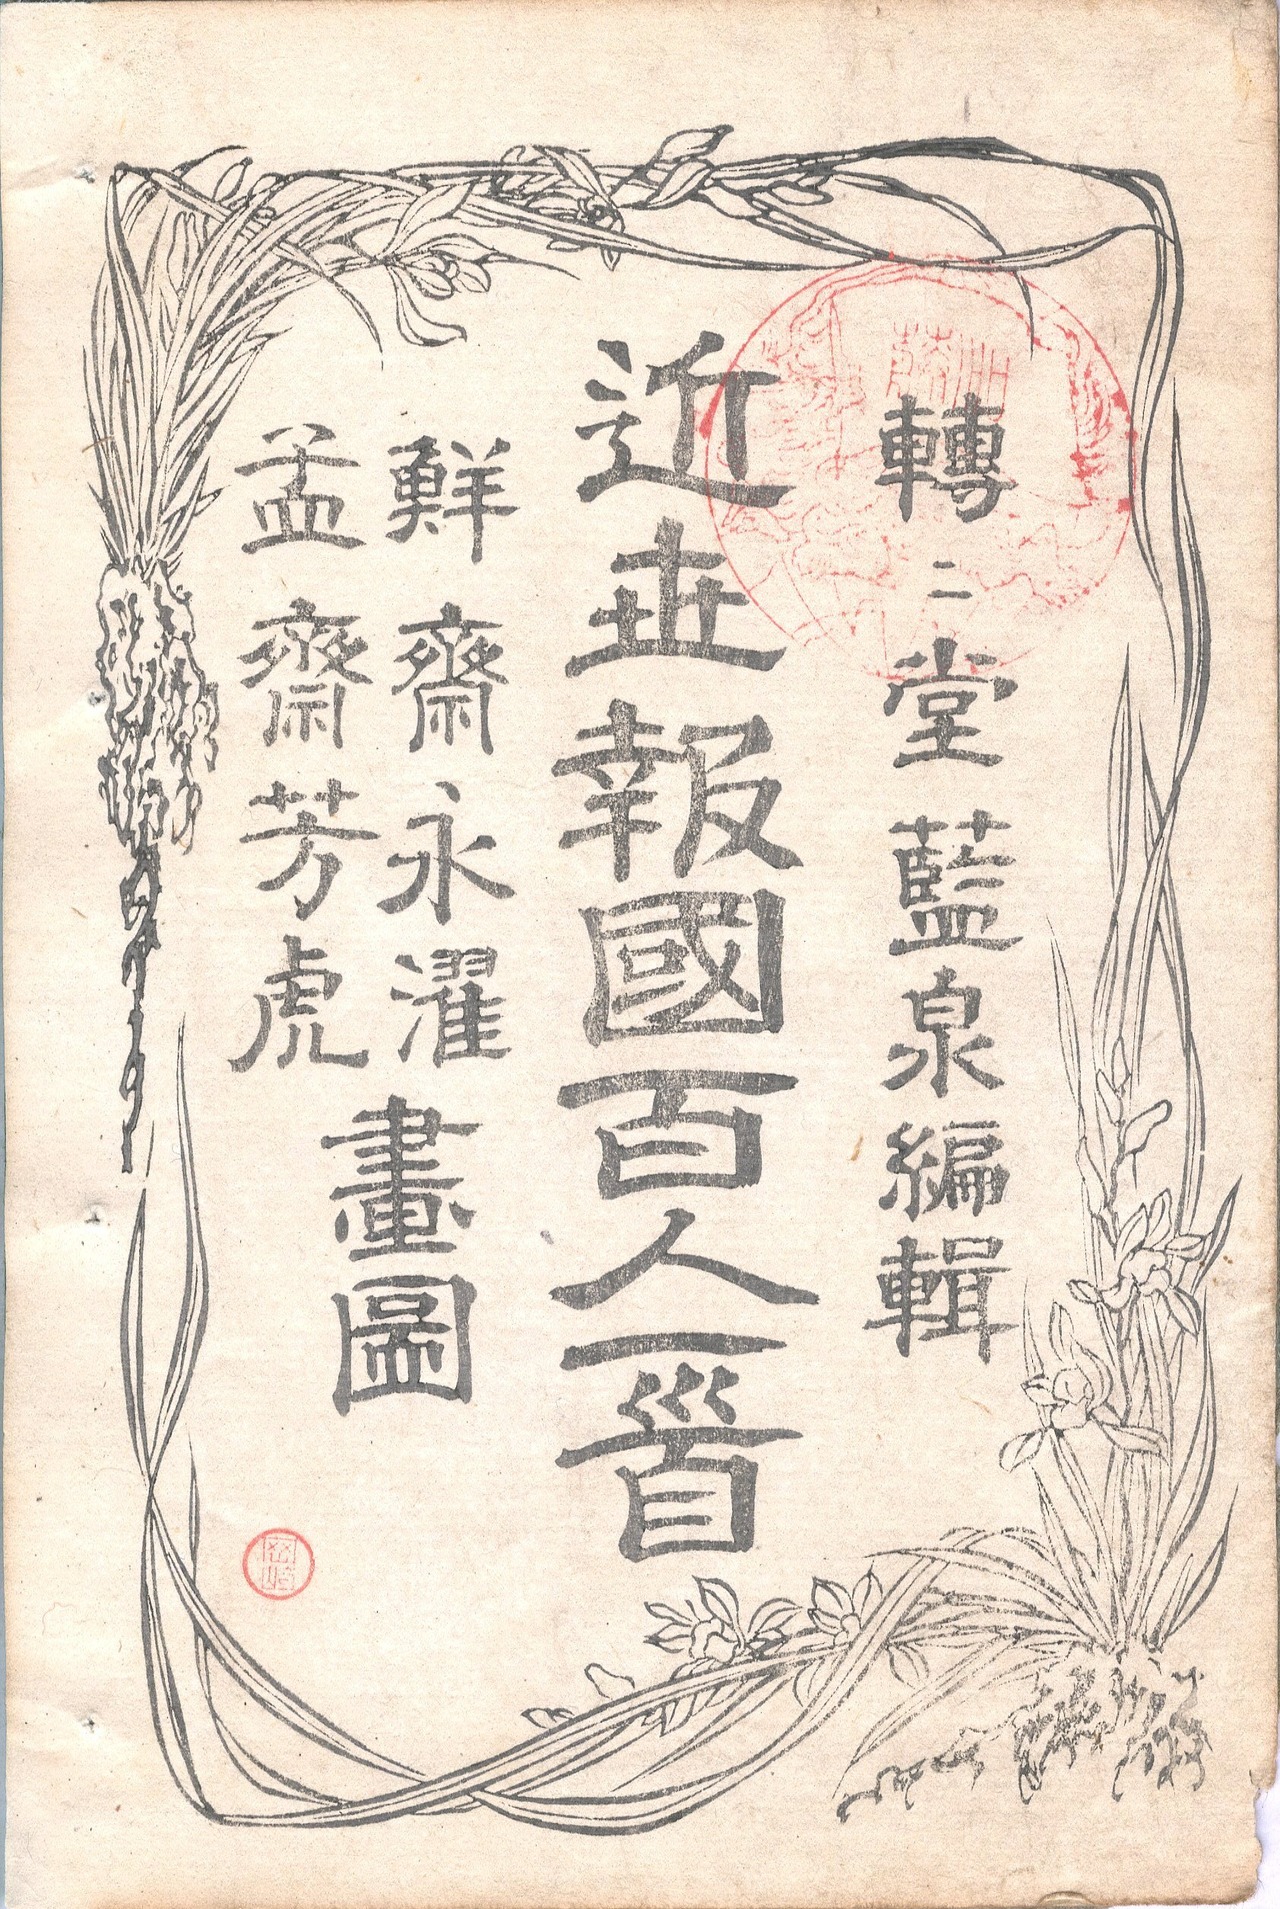 轉々堂藍泉編輯
近世報國百人一首
鮮齋永濯
孟齋芳虎
畫圖